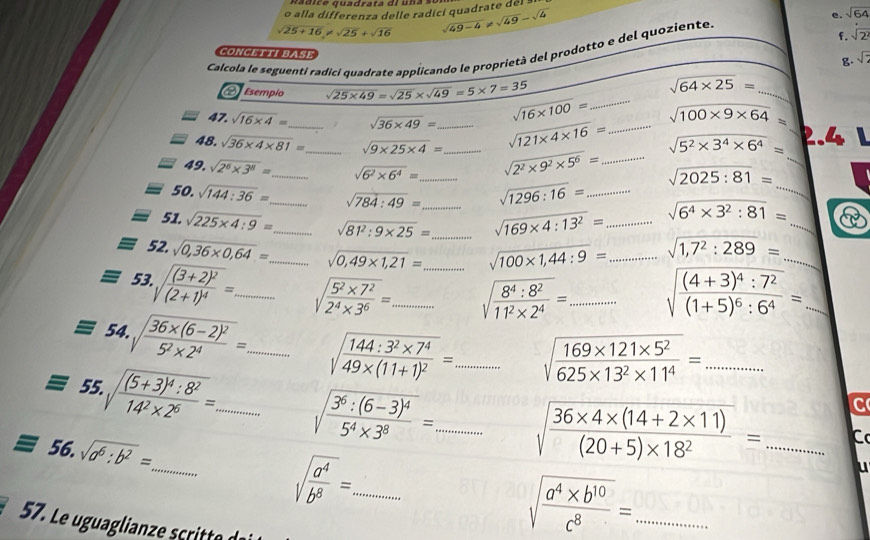 o alla differenza delle radici quadrate
√25+16 ≠ √25 + √16   √49−4 ≠ √49 − √4
CONCETTI BASE
Calcola le seguenti radici quadrate applicando le proprietà del prodotto e del quoziente.
Esempio √25×49 = √25 × √49 = 5 × 7 = 35   √64×25 =
47. √16×4 =   √36×49 =   √16×100 =   √100×9×64 =
48. √36×4×81 =   √9×25×4 =   √121×4×16 =   √5²×3⁴×6⁴ =
49. √2⁶×3⁸ =   √6²×6⁴ =   √2²×9²×5⁶ =   √2025:81 =
50. √144:36 =   √784:49 =   √1296:16 =   √6⁴×3²:81 =
51. √225×4:9 =   √81²:9×25 =   √169×4:13² =   √1,7²:289 =
52. √0,36×0,64 =   √0,49×1,21 =   √100×1,44:9 =
53. √((3+2)²/(2+1)⁴) =   √((5²×7²)/(2⁴×3⁶)) =   √((8⁴:8²)/(11²×2⁴)) =   √(((4+3)⁴:7²)/((1+5)⁶:6⁴)) =
54. √((36×(6−2)²)/(5²×2⁴)) =   √((144:3²×7⁴)/(49×(11+1)²)) =   √((169×121×5²)/(625×13²×11⁴)) =
55. √(((5+3)⁴:8²)/(14²×2⁶)) =   √((3⁶:(6−3)⁴)/(5⁴×3⁸)) =   √((36×4×(14+2×11))/((20+5)×18²)) =
56. √a⁶:b² =   √(a⁴/b⁸) =   √((a⁴×b¹⁰)/c⁸) =
57. Le uguaglianze scritte
e. √64
f.
g.
2.4